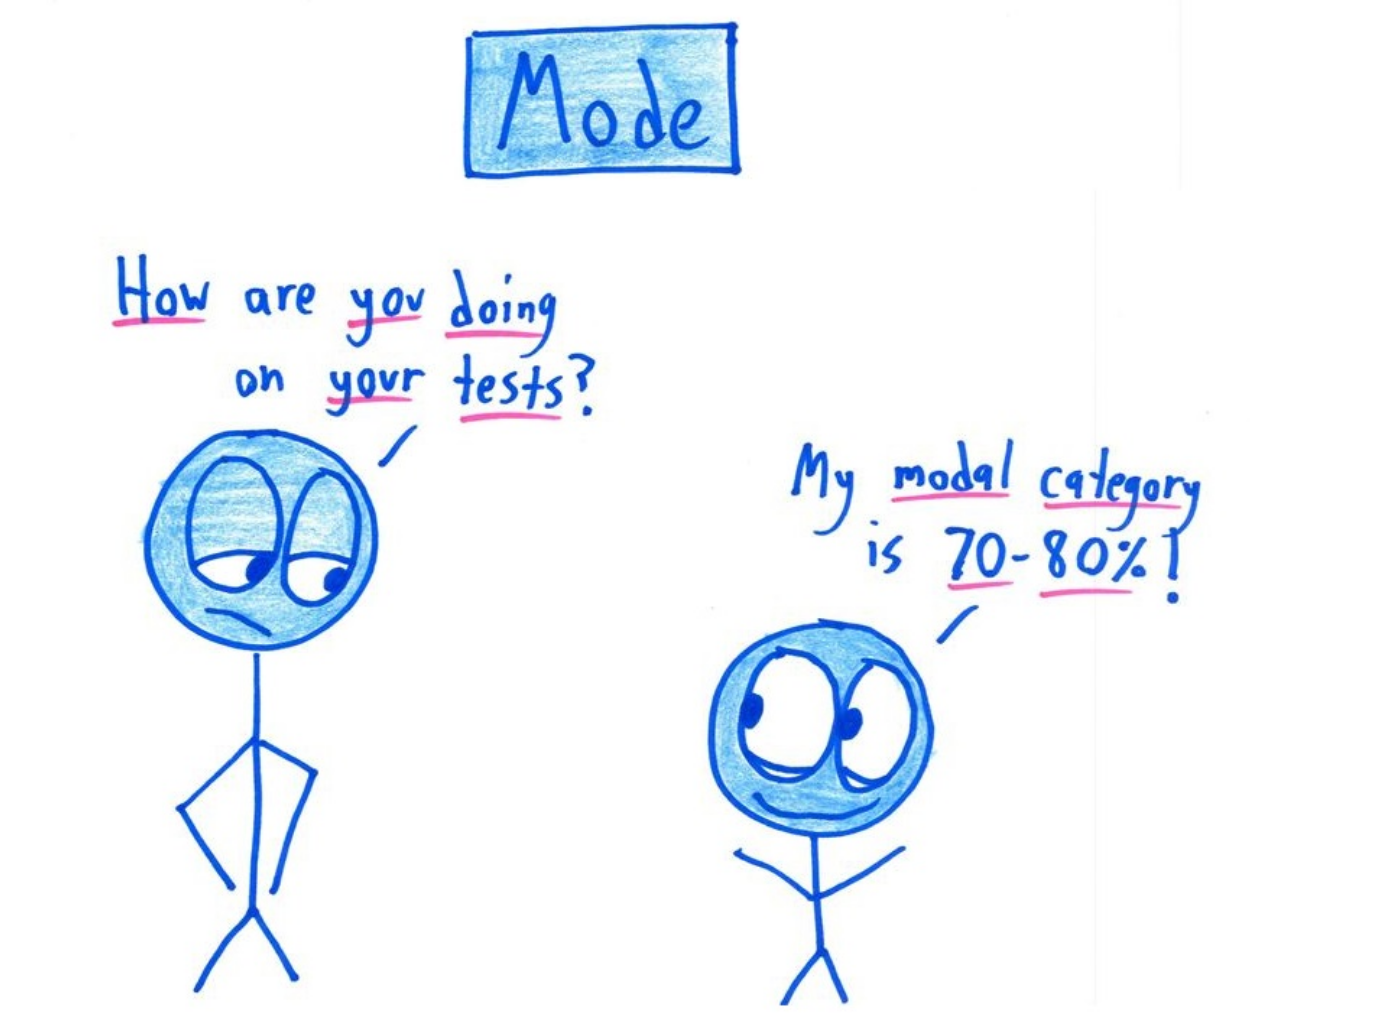 Mode
How are you doing
on your tests?
My modal category
is 70-80%!